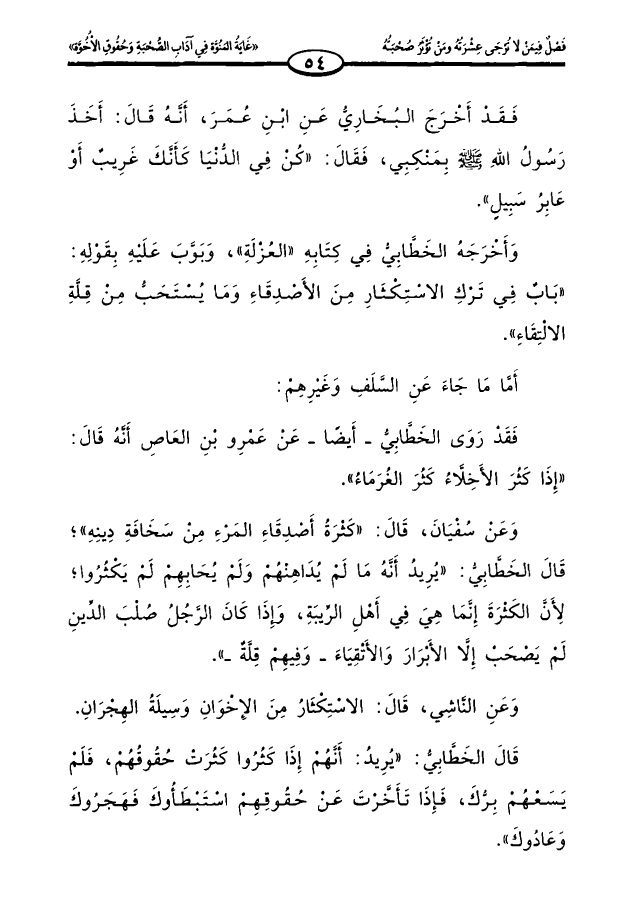 فَصْلٌ فِيمَنْ لَا تُرْجَى عِشْرَتُهُ ومَنْ تُؤْثَرُ صُحْبَتُهُ
٥٤
«غَايَةُ المُنُوَّة فِي آدَابِ الصُّحْبَةِ وَحُقُوقِ الأُخُوَّة»
فَـقَـدْ أَخْـرَجَ الـبُـخَـارِيُّ عَـنِ ابْـنِ عُـمَـرَ، أَنَّـهُ قَـالَ: أَخَـذَ
رَسُولُ اللهِ ﷺ بِمَنْكِبِي، فَقَالَ: «كُنْ فِي الدُّنْيَا كَأَنَّكَ غَرِيبٌ أَوْ
عَابِرُ سَبِيلٍ».
وَأَخْرَجَهُ الخَطَّابِيُّ فِي كِتَابِهِ «العُزْلَةِ»، وَبَوَّبَ عَلَيْهِ بِقَوْلِهِ:
«بَابٌ فِي تَرْكِ الاسْتِكْثَارِ مِنَ الأَصْدِقَاءِ وَمَا يُسْتَحَبُّ مِنْ قِلَّةِ
الالْتِقَاءِ».
أَمَّا مَا جَاءَ عَنِ السَّلَفِ وَغَيْرِهِمْ:
فَقَدْ رَوَى الخَطَّابِيُّ ـ أَيضًا ـ عَنْ عَمْرِو بْنِ العَاصِ أَنَّهُ قَالَ:
«إِذَا كَثُرَ الأَخِلَّاءُ كَثُرَ الغُرَمَاءُ».
وَعَنْ سُفْيَانَ، قَالَ: «كَثْرَةُ أَصْدِقَاءِ المَرْءِ مِنْ سَخَافَةِ دِينِهِ»؛
قَالَ الخَطَّابِيُّ: «يُرِيدُ أَنَّهُ مَا لَمْ يُدَاهِنْهُمْ وَلَمْ يُحَابِهِمْ لَمْ يَكْثُرُوا؛
لِأَنَّ الكَثْرَةَ إِنَّمَا هِيَ فِي أَهْلِ الرِّيبَةِ، وَإِذَا كَانَ الرَّجُلُ صُلْبَ الدِّينِ
لَمْ يَصْحَبْ إِلَّا الأَبْرَارَ وَالأَتْقِيَاءَ ـ وَفِيهِمْ قِلَّةٌ ـ».
وَعَنِ النَّاشِي، قَالَ: الاسْتِكْثَارُ مِنَ الإِخْوَانِ وَسِيلَةُ الهِجْرَانِ.
قَالَ الخَطَّابِيُّ: «يُرِيدُ: أَنَّهُمْ إِذَا كَثُرُوا كَثُرَتْ حُقُوقُهُمْ، فَلَمْ
يَسَعْهُمْ بِرُّكَ، فَإِذَا تَأَخَّرْتَ عَنْ حُقُوقِهِمْ اسْتَبْطَأُوكَ فَهَجَرُوكَ
وَعَادُوكَ».